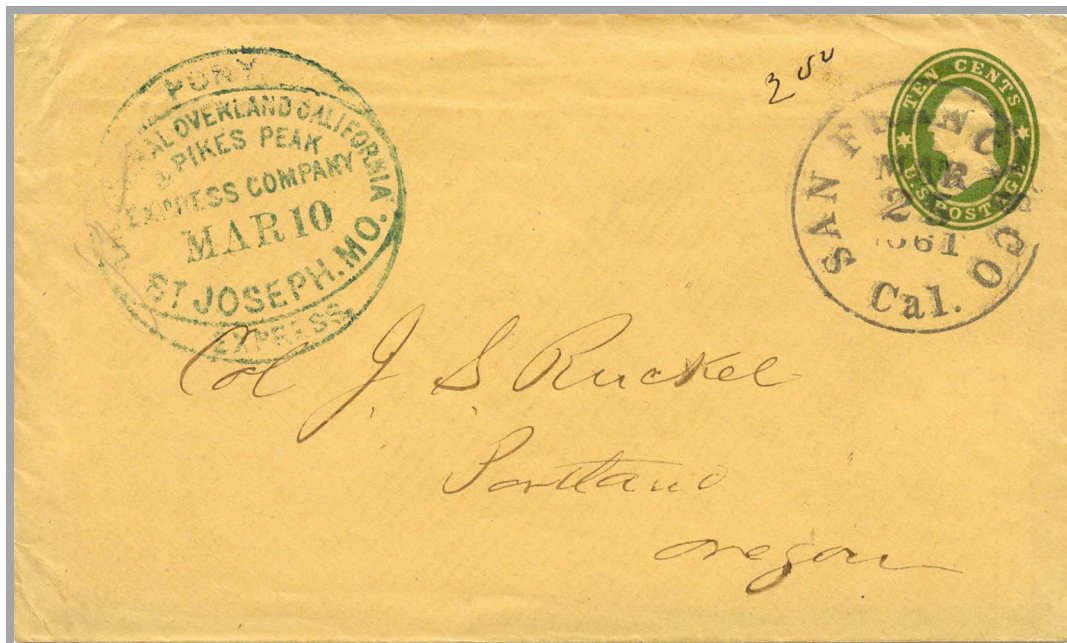 PONY
OVERLAND CALIFORNIA
& PIKES PEAK
EXPRESS COMPANY
MAR 10
ST JOSEPH. MO.
EXPRESS
2 00
TEN CENTS
U.S. POSTAGE
SAN FRANCISCO
MAR
25
1861
Cal.
Col J. S Ruckel
Portland
Oregon